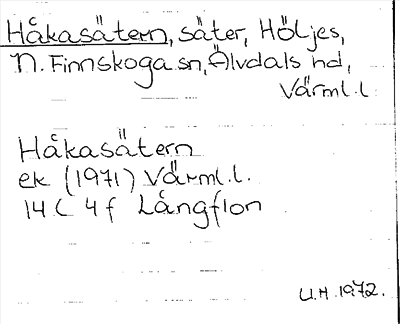 Håkasätern, säter, Höljes,
N. Finnskoga sn, Älvdals hd,
Värml. l.
Håkasätern
ek (1971) Värml. l.
14 C 4 f Långflon
U.H. 1972.